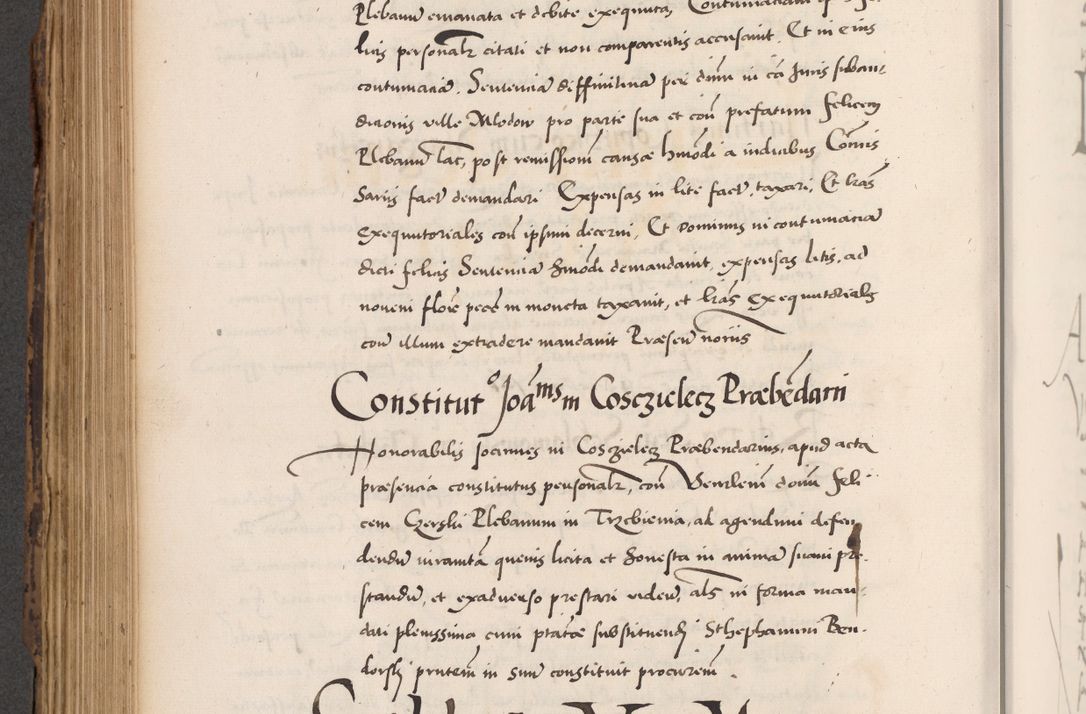 Plebanum emanata et debite exequuta, Contumaciam
licis personalr citati et non comparentis accusavit. Et in eius
contumaciã. Sentenciã diffinitivã per dnm in cã Juris subau-
dicionis ville Mlodow pro parte sua et con prefatum felicem
Plebanum lat, post remissionem causæ hmõdi a iudicibus Comis
Sariis fact demandari Expensas in lite fact, taxari, Et lras
Exequutoriales con ipsum decerni, Et Dominus in contumaciã
dicti felicis Sentenciã hmõdi demandavit, expensas litis, ad
noveni flore pecẽ in moneta taxavit, et lras Exequutoriales
con illum extradere mandavit Præsen noriis
Constitut° Joãnis in Cosczielecz Præbẽdarii
Honorabilis Joannes in Cosczielecz Præbendarius, apud acta
præsencia constitutus personalr, con Venrlem domi Feli-
cem Czerski Plebanum in Trzebienia, ad agendum defen
dendũ iuramtã quevis licita et honesta in animã suam pre-
standũ, et exadverso prestari videñ, als in forma man-
dati plenissima cum ptãte substituendi Sthephanum Ben-
dorski pñtem in suũ constituit procurem.